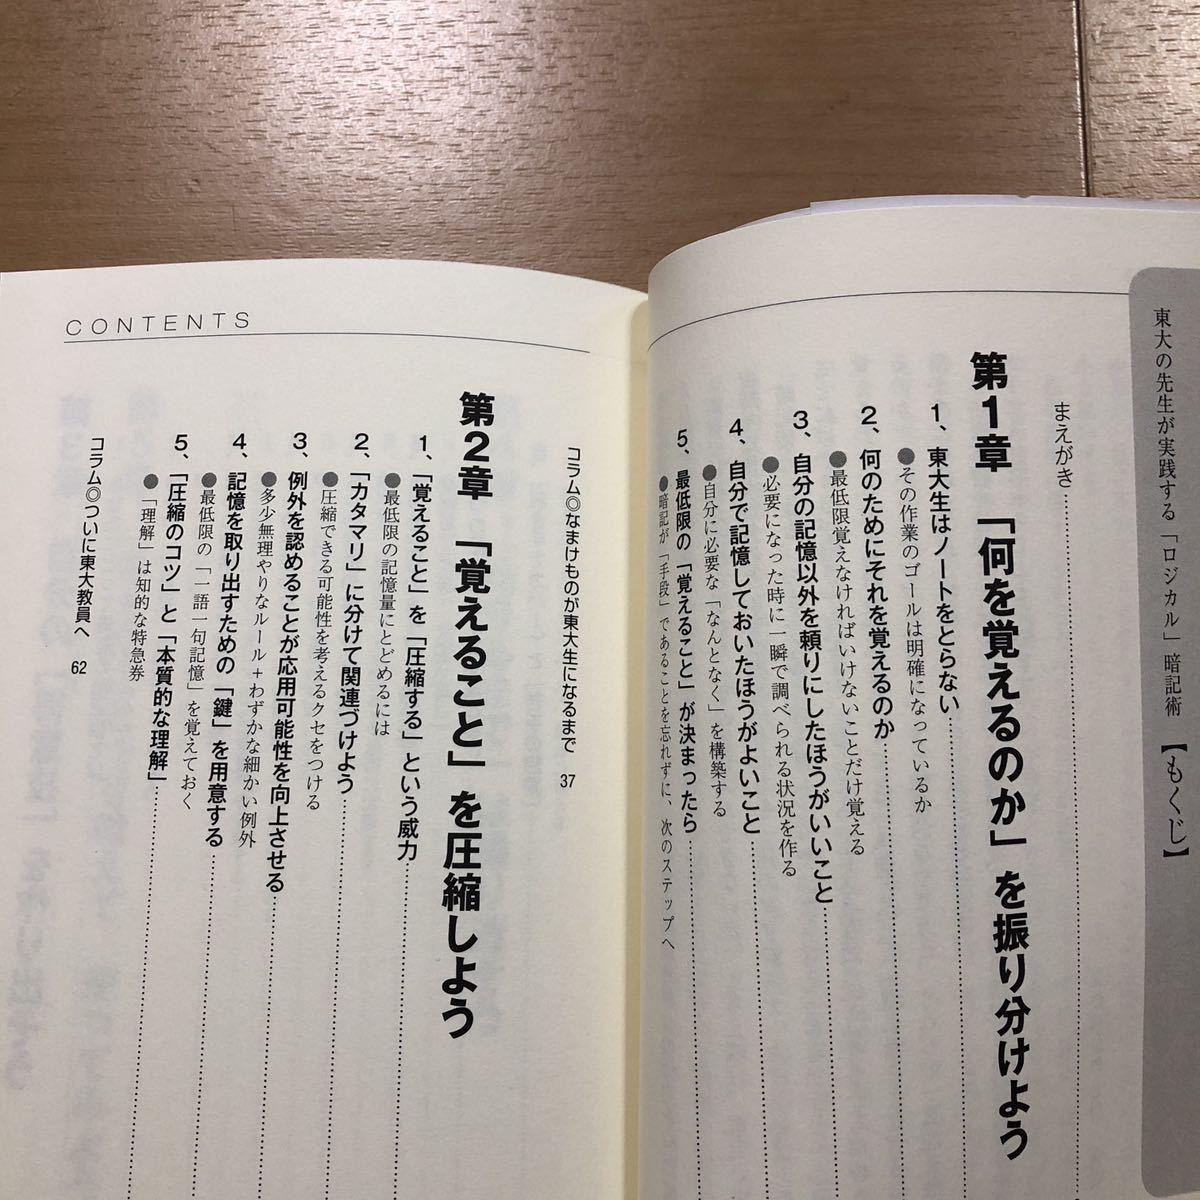 東大の先生が実践する「ロジカル」暗記術 【もくじ】
まえがき
第1章 「何を覚えるのか」を振り分けよう
1、東大生はノートをとらない
●その作業のゴールは明確になっているか
2、何のためにそれを覚えるのか
●最低限覚えなければいけないことだけ覚える
3、自分の記憶以外を頼りにしたほうがいいこと
●必要になった時に一瞬で調べられる状況を作る
4、自分で記憶しておいたほうがよいこと
●自分に必要な「なんとなく」を構築する
5、最低限の「覚えること」が決まったら
●暗記が「手段」であることを忘れずに、次のステップへ
CONTENTS
コラム◎なまけものが東大生になるまで 37
第2章 「覚えること」を圧縮しよう
1、「覚えること」を「圧縮する」という威力
●最低限の記憶量にとどめるには
2、「カタマリ」に分けて関連づけよう
●圧縮できる可能性を考えるクセをつける
3、例外を認めることが応用可能性を向上させる
●多少無理やりなルール+わずかな細かい例外
4、記憶を取り出すための「鍵」を用意する
●最低限の「一語一句記憶」を覚えておく
5、「圧縮のコツ」と「本質的な理解」
●「理解」は知的な特急券
コラム◎ついに東大教員へ 62